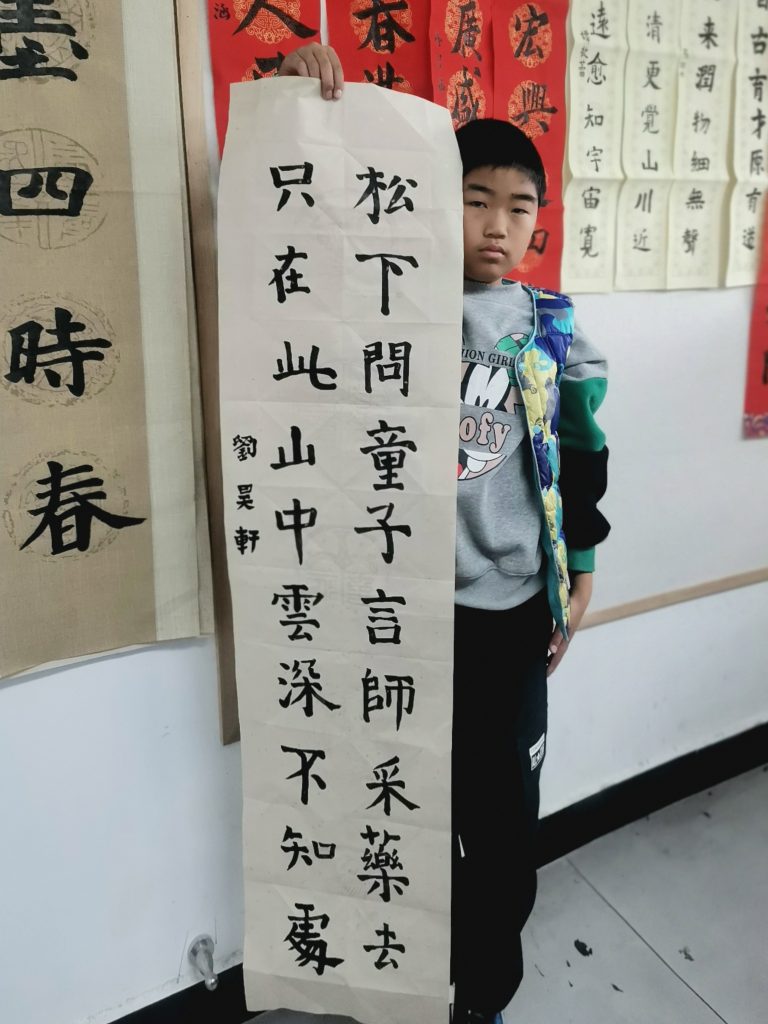 松下問童子言師采藥去
只在此山中雲深不知處
劉昊軒
墨四時春
春
廣盛
宏興
遠愈知宇宙寬
清更覺山川近
來潤物細無聲
古有才原有道
HION GIRL
oofy